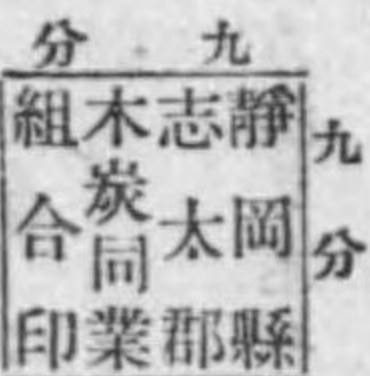 九分
九分
靜岡縣
志太郡
木炭同業
組合印